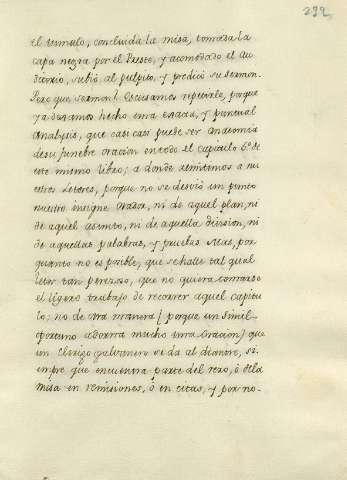 292
el tumulo, concluida la misa, tomada la
capa negra por el Preste, y acomodado el Au-
ditorio, subió al pulpito, y predicó su sermon.
Pero que sermon! Escusamos repetirle, porque
ya dexamos hecho una exacta, y puntual
Analysis, que casi casi puede ser Anatomia
de su funebre oracion en todo el capitulo 6º de
este mismo libro; a donde remitimos a nu
estros Letores, porque no se desvió un punto
nuestro insigne Orador, ni de aquel plan, ni
de aquel asunto, ni de aquella division, ni
de aquellas palabras, y pruebas suas, por
quanto no es posible, que se halle tal qual
letor tan perezoso, que no quiera tomarse
el ligero trabajo de recorrer aquel capitu
lo; no de otra manera (porque un simil
oportuno adorna mucho una Oracion) que
un clerigo galvanero se da al diantre, si
empre que encuentra parte del rezo, ó de la
misa en remisiones, ó en citas, y por no-